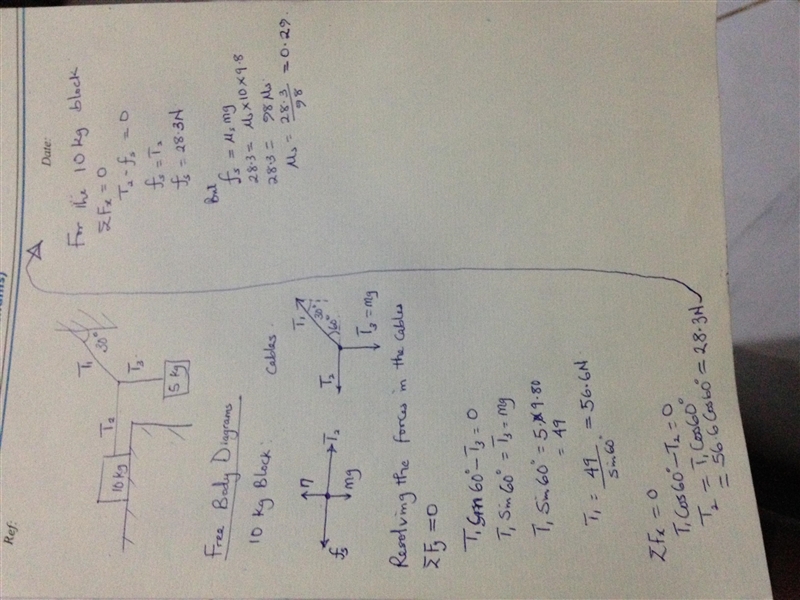 Ref:
Date:
T₁
30°
T₂
T₃
10 kg
5 kg
Free Body Diagrams
10 kg Block:
Cables:
η
fs
T₂
mg
T₁
30°
60°
T₂
T₃ = mg
Resolving the forces in the cables
ΣFy = 0
T₁ Sin 60° - T₃ = 0
T₁ Sin 60° = T₃ = mg
T₁ Sin 60° = 5 × 9.80
= 49
T₁ = 49 / Sin 60 = 56.6N
ΣFx = 0
T₁ Cos 60° - T₂ = 0
T₂ = T₁ Cos 60°
= 56.6 Cos 60° = 28.3N
For the 10 kg block
ΣFx = 0
T₂ - fs = 0
fs = T₂
fs = 28.3N
But
fs = μs mg
28.3 = μs × 10 × 9.8
28.3 = 98 μs
μs = 28.3 / 98 = 0.29.